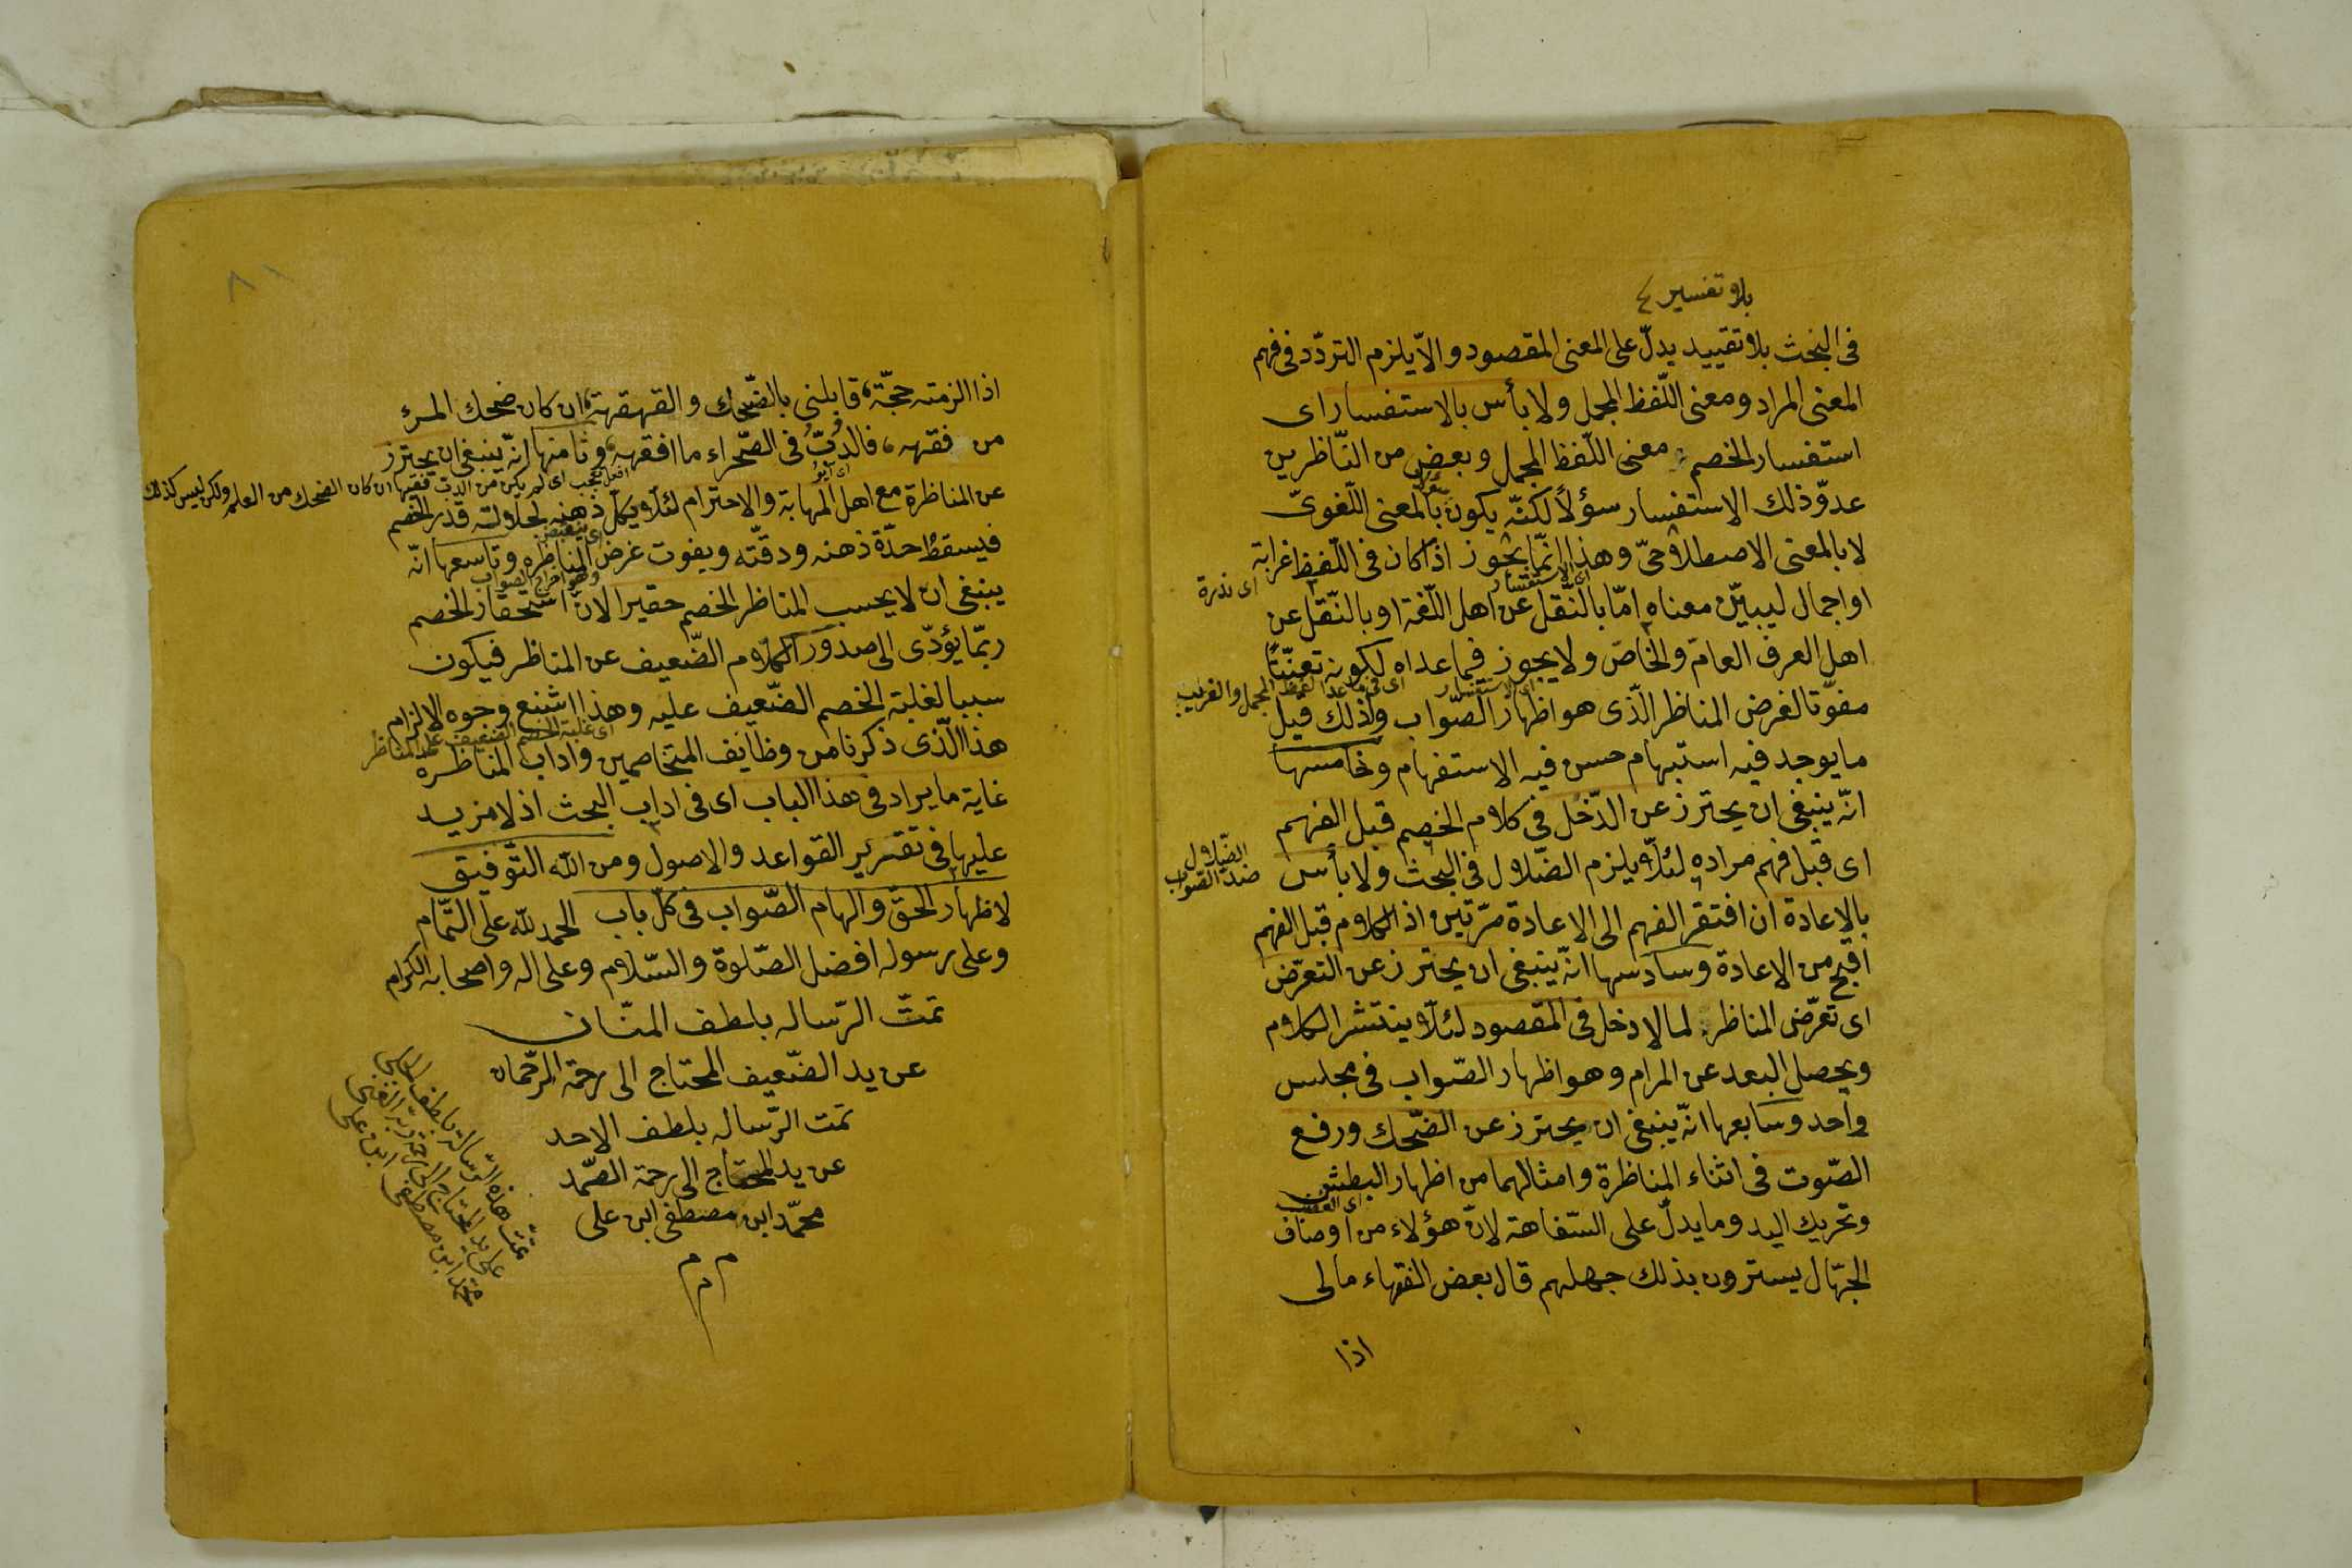 بلا تفسير
فى البحث بلا تقييد يدلّ على المعنى المقصود والاّ يلزم التردّد فى فهم
المعنى المراد ومعنى اللّفظ المجمل ولا بأس بالاستفسار اى
استفسار الخصم معنى اللّفظ المجمل وبعض من النّاظرين
عدوّ ذلك الاستفسار سؤلاً لكنّه يكون بالمعنى اللّغوىّ
لا بالمعنى الاصطلاحىّ وهذا انّما يجوز اذا كان فى اللّفظ غرابة
اى ندرة
اى الاستفسار
او اجمال ليبيّن معناه امّا بالنّقل عن اهل اللّغة او بالنّقل عن
اهل العرف العامّ والخاصّ ولا يجوز فيما عداه لكونه تعنّتًا
اى الاستفسار
اى فى ما عدا اللفظ المجمل والغريب
مفوّتا لغرض المناظر الّذى هو اظهار الصّواب ولذلك قيل
ما يوجد فيه استبهام حسن فيه الاستفهام وخامسها
انّه ينبغى ان يحترز عن الدّخل فى كلام الخصم قبل الفهم
اى قبل فهم مراده لئلاّ يلزم الضّلال فى البحث ولا بأس
الضّلال
ضدّ الصّواب
بالاعادة ان افتقر الفهم الى الاعادة مرّتين اذ الكلام قبل الفهم
اقبح من الاعادة وسادسها انّه ينبغى ان يحترز عن التعرّض
اى تعرّض المناظر لما لا دخل فى المقصود لئلاّ ينتشر الكلام
ويحصل البعد عن المرام وهو اظهار الصّواب فى مجلس
واحد وسابعها انّه ينبغى ان يحترز عن الضّحك ورفع
الصّوت فى اثناء المناظرة وامثالهما من اظهار البطش
اى الغضب
وتحريك اليد وما يدلّ على السّفاهة لانّ هؤلاء من اوصاف
الجهّال يسترون بذلك جهلهم قال بعض الفقهاء مالى
اذا
اذا الزمته حجّة قابلنى بالضّحك والقهقهة ان كان ضحك المرئ
من فقهه فالدّبّ فى الصّحراء ما افقهه وثامنها انّه ينبغى ان يحترز
افعل تعجب اى لم يكن من الدبّ فقيها ان كان الضحك من العلم ولكن ليس كذلك
عن المناظرة مع اهل المهابة والاحترام لئلاّ يكلّ ذهنه لجلالة قدر الخصم
فيسقط حدّة ذهنه ودقّته ويفوت غرض المناظره وتاسعها انّه
وهو اخراج الصّواب
ينبغى ان لا يحسب المناظر الخصم حقيرا لانّ استحقار الخصم
ربّما يؤدّى الى صدور الكلام الضّعيف عن المناظر فيكون
سببا لغلبة الخصم الضّعيف عليه وهذا اشنع وجوه الالزام
اى غلبة الخصم الضعيف على المناظر
هذا الّذى ذكرنا من وظايف المتخاصمين واداب المناظرة
غاية ما يراد فى هذا الباب اى فى اداب البحث اذ لا مزيد
عليها فى تقرير القواعد والاصول ومن اللّه التّوفيق
لاظهار الحقّ والهام الصّواب فى كلّ باب الحمد للّه على التّمام
وعلى رسوله افضل الصّلوة والسّلام وعلى اله واصحابه الكرام
تمّت الرّساله بلطف المنّان
عن يد الضّعيف المحتاج الى رحمة الرّحمان
تمت الرّساله بلطف الاحد
عن يد المحتاج الى رحمة الصّمد
محمّد ابن مصطفى ابن على
م م م
تمّت هذه الرّسالة بلطف
على يد المحتاج الى رحمة ربّه الغنى
محمّد ابن مصطفى ابن على